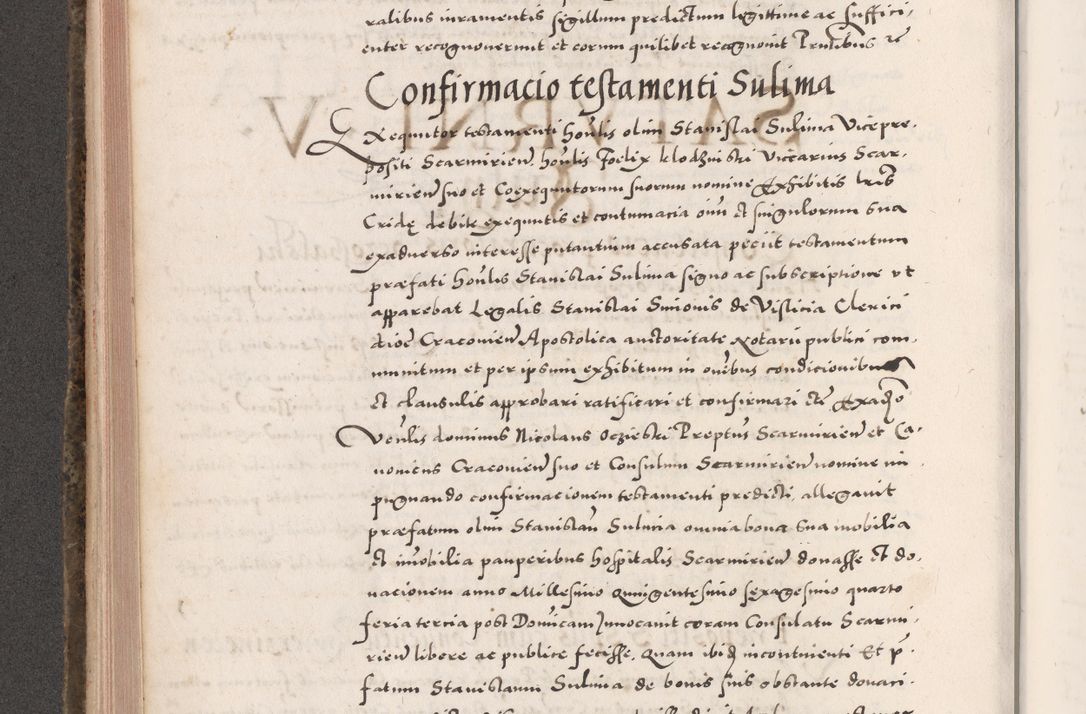 ralibus iuramentis sigillum predictum legittime ac suffici,
enter recognoverunt et eorum quilibet recognovit Prntibus
Confirmacio testamenti Sulima
Exequutor testamenti hon̄lis olim Stanislai Sulima Vicepre,
positi Scarmirien̄ hon̄lis Foelix klodzinski viccarius Scar,
mirien̄ suo et Coexequutorum suorum nomine Exhibitis lr̄is
Cridę debite exequutis et contumacia om̄i et singulorum sua
exadverso interesse putantium accusata peciit testamentum
præfati hon̄lis Stanislai Sulima signo ac subscriptione vt
apparebat Legalis Stanislai Simonis de Vislicia Clerici
dioc̄ Cracovien̄ Apostolica auctoritate Notarii publici com,
munitum et per ipsum exhibitum in om̄ibus condicionibus
et clausulis approbari ratificari et confirmari etc̄ Exadv̄o
Ven̄lis dominus Nicolaus Oczieski Preptus Scarmirien̄ et Ca,
nonicus Cracovien̄ suo et Consulum Scarmirien̄ nomine im
pugnando confirmacionem testamenti predicti, allegavit
præfatum olim Stanislau̅ Sulima omnia bona sua mobilia
et im̄obilia pauperibus hospitalis Scarmirien̄ donasse et do,
nacionem anno Millesimo quingentesimo sexagesimo quarto
feria tercia post Dominicam Invocavit coram Consulatu Scarmi,
rien̄ libere ac publice fecisse, Quam ibid̄ incontinenti Et p̄
fatum Stanislaum Sulima de bonis suis obstante donaci,